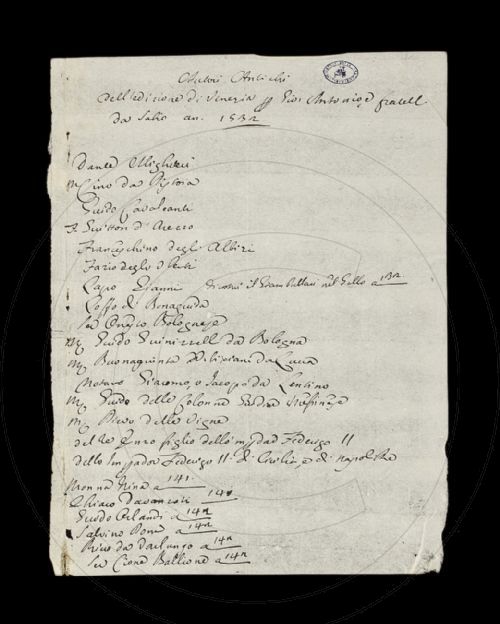 Autori Antichi
dell'edizione di Venezia p Gio: Antonio, e fratell
da Sabio an. 1532
Dante Alighieri
M Cino da Pistoia
Guido Cavalcanti
F Guitton d'Arezzo
Franceschino degli Albizi
Fazio degli Uberti
Lapo Gianni dicono il
Loffo di Bonaguida
Ser Onesto Bolognese
M Guido Guinizzelli da Bologna
M Buonagiunta da Lucca
Notaro Giacomo, o Jacopo da Lentino
M Guido delle Colonne Giudice Messinese
M Piero delle Vigne
del Re Enzo figlio dello Federigo II
dello Federigo II di Cicilia, e di Napoli
Monna Nina a 141
Chiaro Davanzati 141
Guido Orlandi a 142
Salvino Doni a 142
Ricco da Varlungo a 142
Ser Cione Ballione a 142